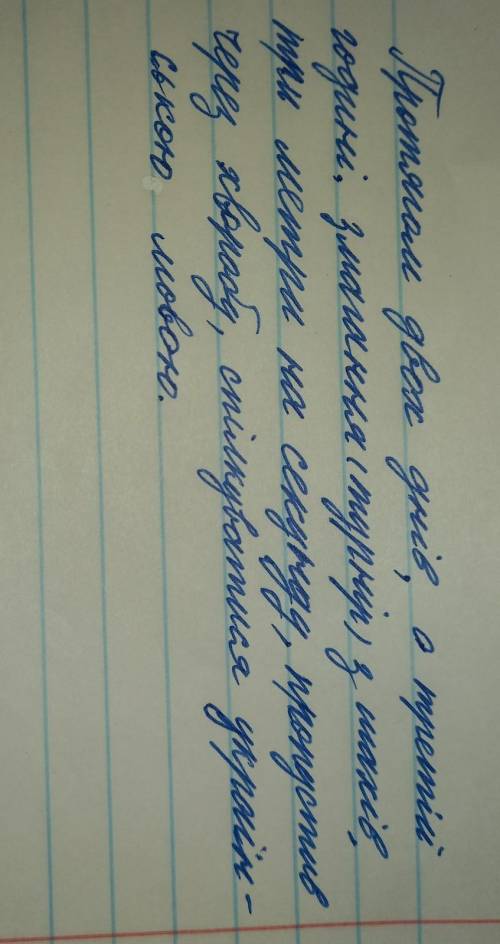 Протягом двох днів, о третій
годині, змагання (турнір) з шахів,
три метри на секунду, пропустив
через хворобу, спілкуватися україн-
ською мовою.